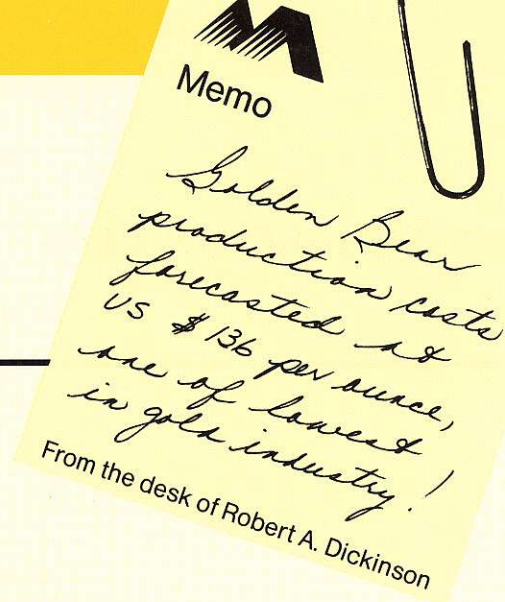 Memo
Golden Bear
production costs
forecasted at
US $136 per ounce,
one of lowest
in gold industry!
From the desk of Robert A. Dickinson